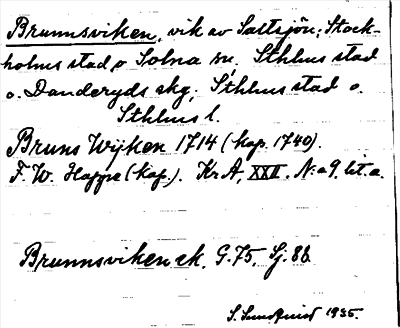 Brunnsviken, vik av Saltsjön; Stock-
holms stad o Solna sn. Sthlms stad
o. Danderyds skg; Sthlms stad o.
Sthlms l.
Bruns Wijken 1714 (kop. 1740).
F. W. Hoppe (kop.). KrA, XXII. N:o 9. lit. a.
Brunnsviken ek. G. 75, Sj. 88
S. Sundquist 1935.